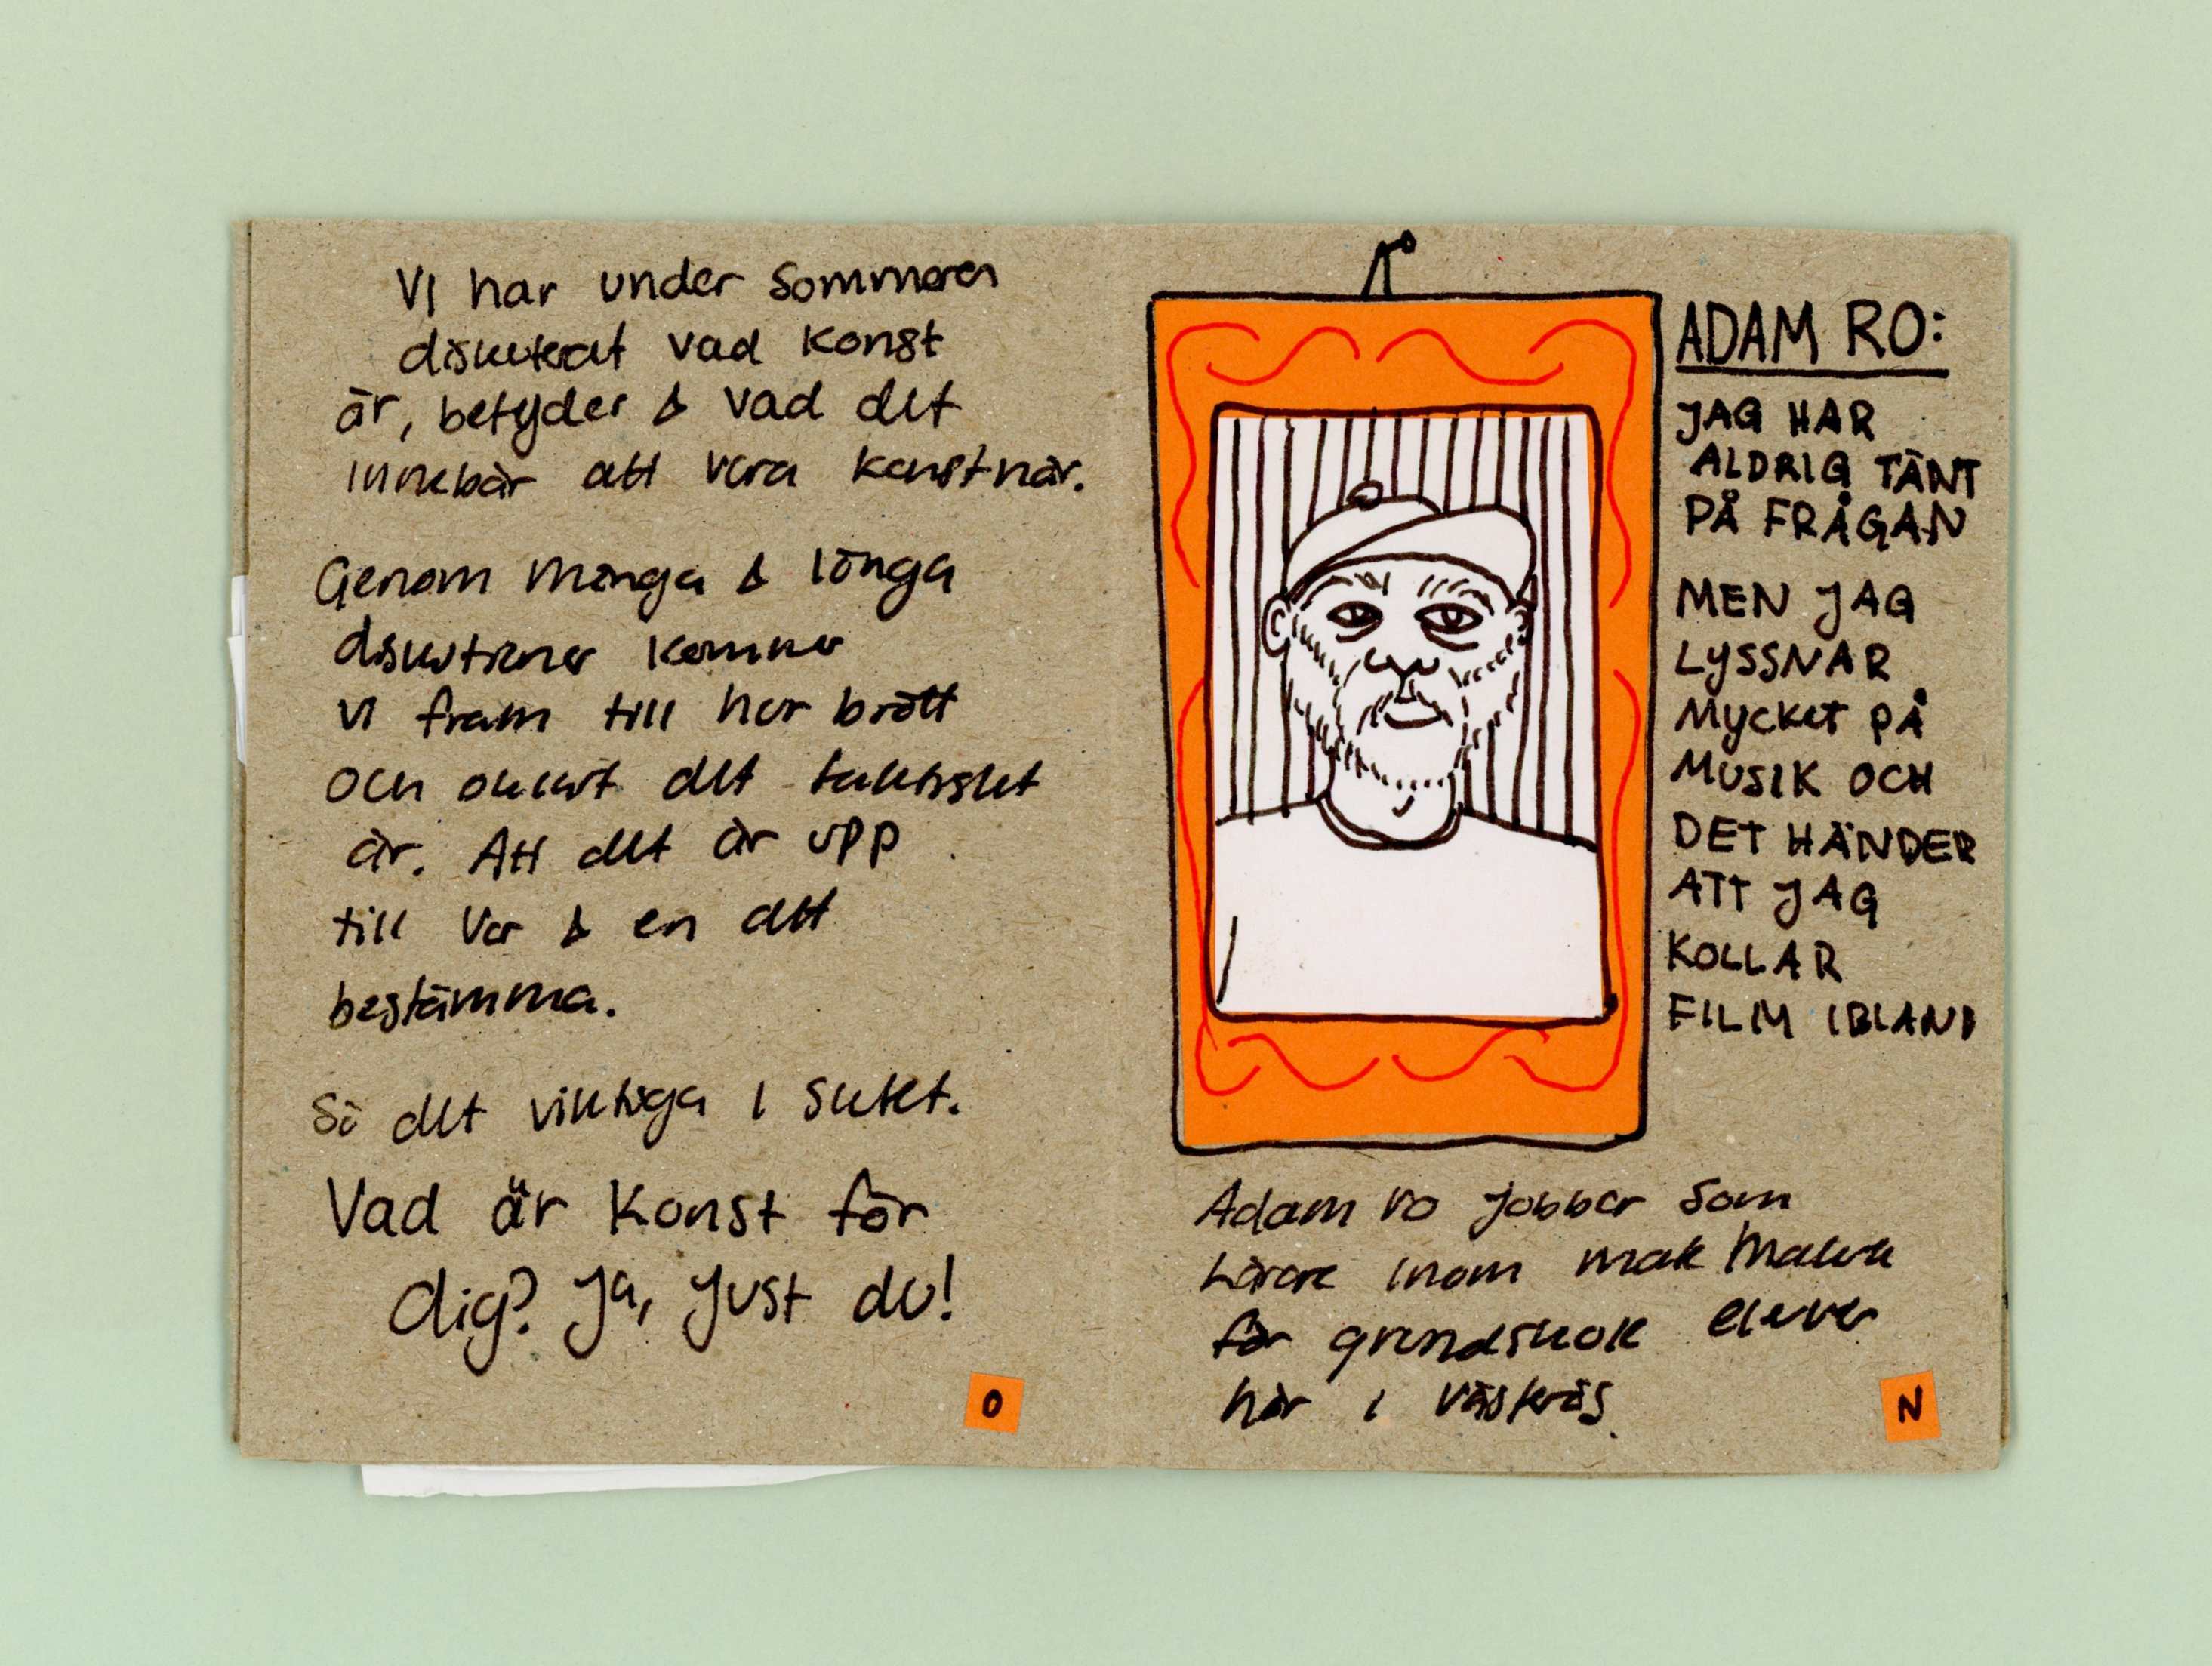 Vi har under sommaren
diskuterat vad konst
är, betyder & vad det
innebär att vara konstnär.
Genom många & långa
diskutioner kommer
vi fram till hur brett
och okänt det faktisket
är. Att det är upp
till var & en att
bestämma.
Så det viktiga i sutet.
Vad är Konst för
dig? Ja, Just du!
O
ADAM RO:
JAG HAR
ALDRIG TÄNT
PÅ FRÅGAN
MEN JAG
LYSSNAR
MYCKET PÅ
MUSIK OCH
DET HÄNDER
ATT JAG
KOLLAR
FILM IBLAND
Adam Ro Jobbar som
Lärare inom
för grundskole elever
här i Västerås.
N